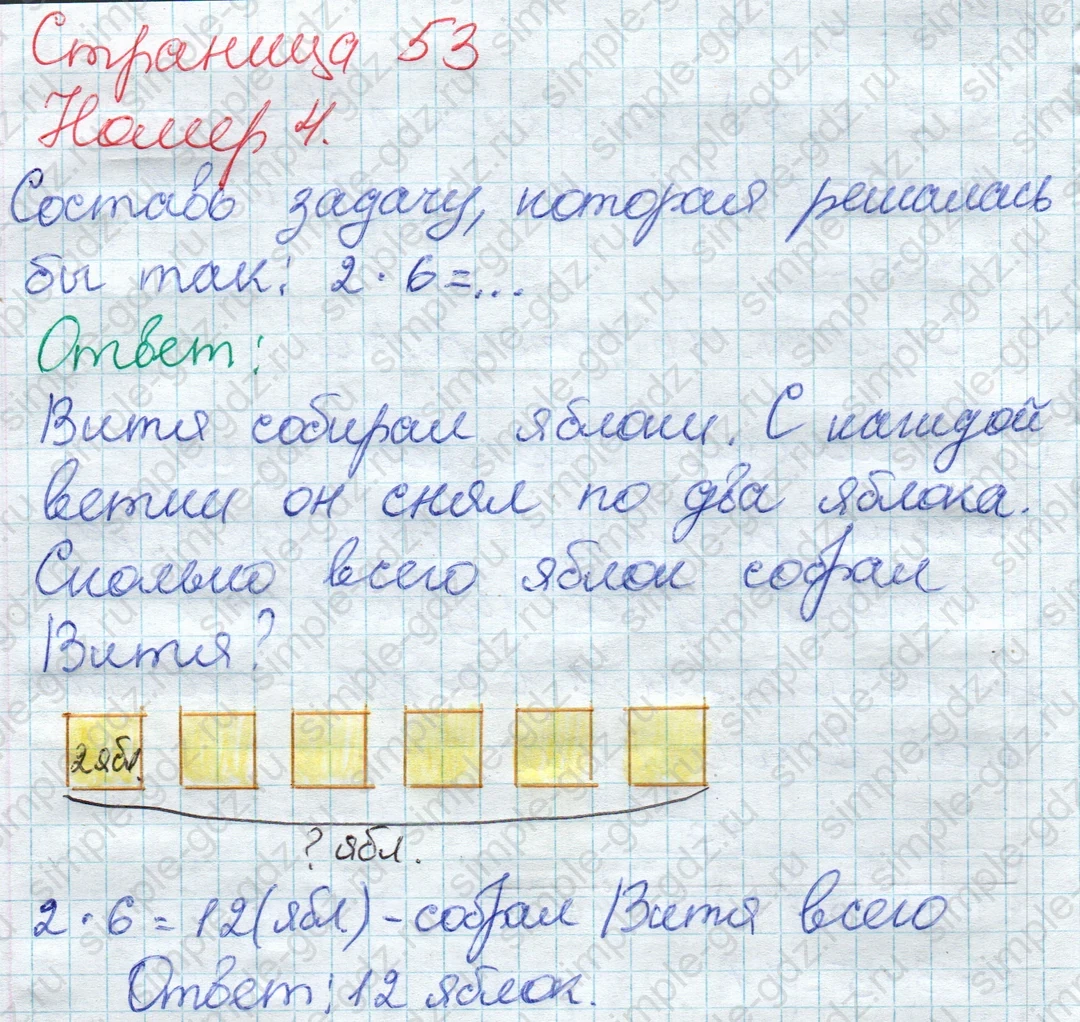 Страница 53
Номер 4.
Составь задачу, которая решалась
бы так: 2 · 6 = ...
Ответ:
Витя собирал яблоки. С каждой
ветки он снял по два яблока.
Сколько всего яблок собрал
Витя?
2 ябл.
? ябл.
2 · 6 = 12 (ябл) - собрал Витя всего
Ответ: 12 яблок.
simple-gdz.ru